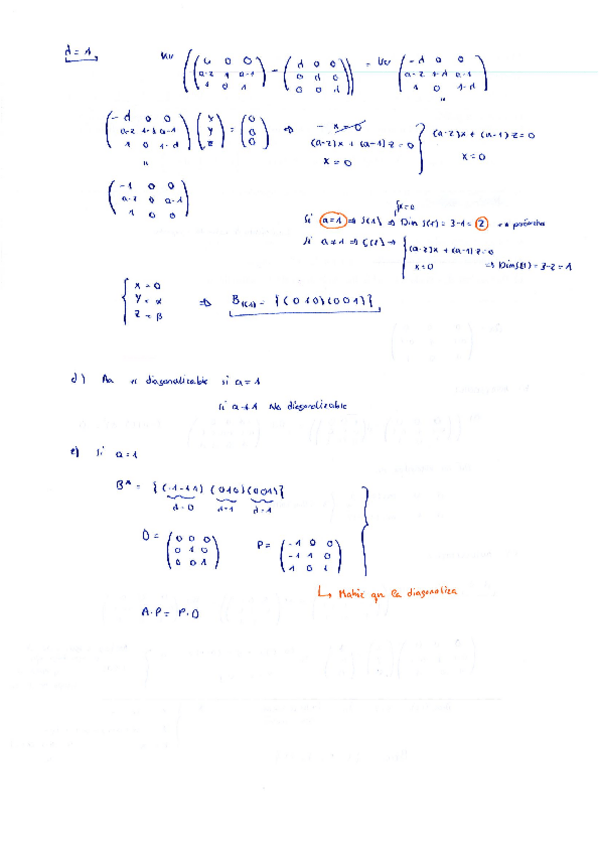 d = 1
Ker ((0 0 0 / a-2 1 a-1 / 1 0 1) - (d 0 0 / 0 d 0 / 0 0 d)) = Ker (-d 0 0 / a-2 1-d a-1 / 1 0 1-d)
(-d 0 0 / a-2 1-d a-1 / 1 0 1-d) (x / y / z) = (0 / 0 / 0) ⇒ -x=0 / (a-2)x + (a-1)z=0 / x=0 } (a-2)x + (a-1)z=0 / x=0
(-1 0 0 / a-2 0 a-1 / 1 0 0)
{x=0
Si a=1 ⇒ S(1) ⇒ Dim S(1) = 3-1= 2
Si a≠1 ⇒ { (a-2)x + (a-1)z=0 / x=0 ⇒ Dim S(1) = 3-2=1
{ x=0 / y=α / z=β ⇒ B = {(0 1 0)(0 0 1)}
d) Aa es diagonalizable si a=1
si a≠1 No diagonalizable
e) Si a=1
B* = {(-1 -1 1) (0 1 0) (0 0 1)}
d=0 d=1 d=1
D = (0 0 0 / 0 1 0 / 0 0 1) P = (-1 0 0 / -1 1 0 / 1 0 1)
↳ Matriz que la diagonaliza
A·P = P·D